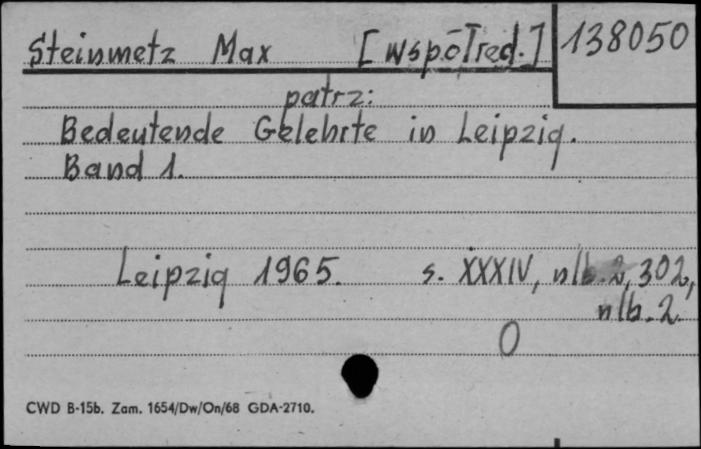 Steinmetz Max [Współred.] 138050
patrz:
Bedeutende Gelehrte in Leipzig.
Band 1.
Leipzig 1965. s. XXXIV, nlb. 2, 302,
nlb. 2.
0
CWD B-15b. Zam. 1654/Dw/On/68 GDA-2710.